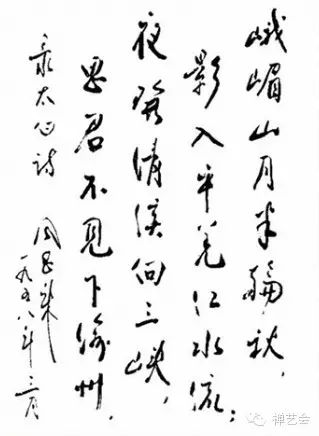 峨嵋山月半轮秋，
影入平羌江水流；
夜发清溪向三峡，
思君不见下渝州．
录太白诗
周恩来
一九五八年三月
禅艺会